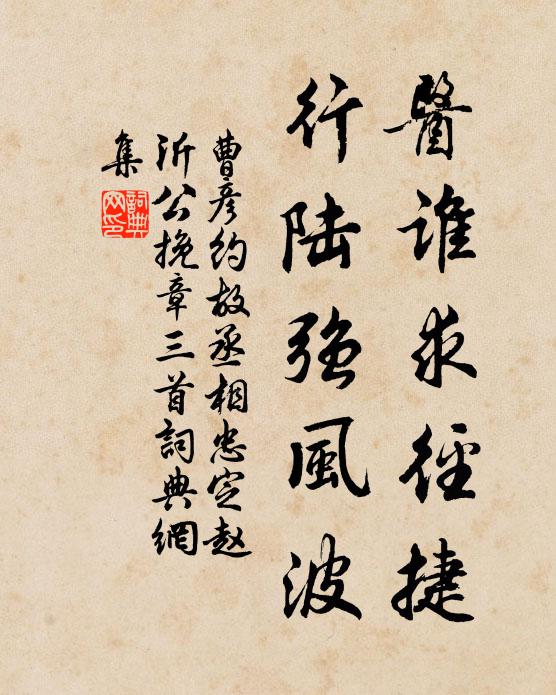 醫誰求徑捷
行陆強風波
曹彦約故丞相忠定赵
沂公挽章三首詞典網
集
詞典
网印